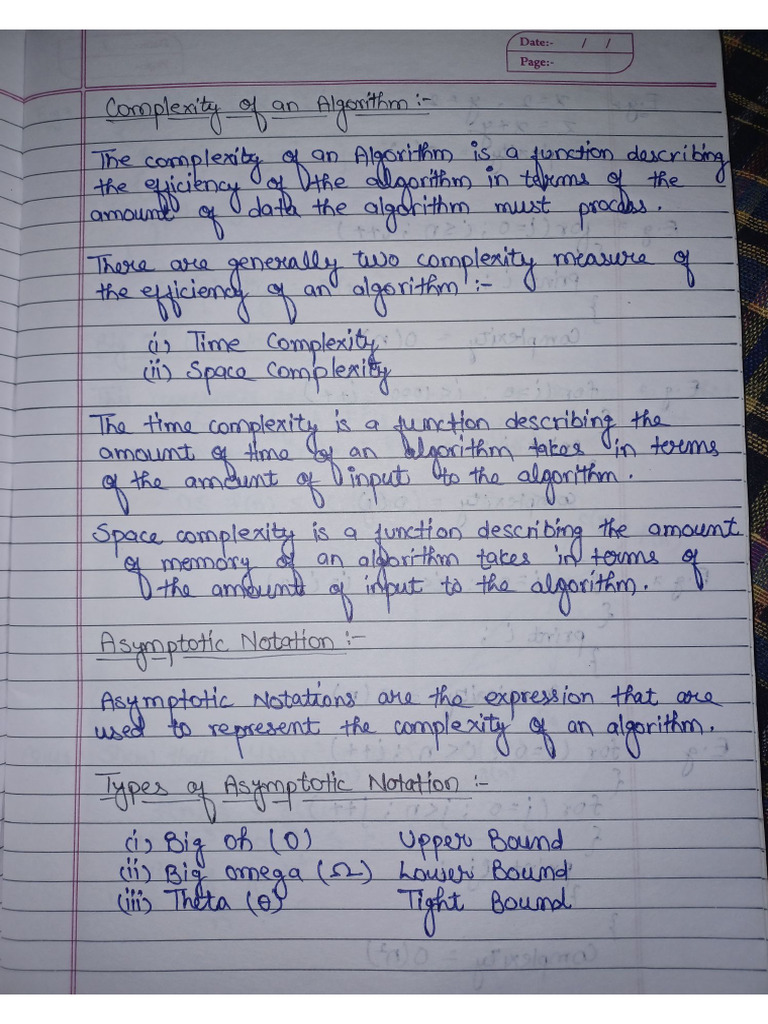 Date:- / /
Page:-
Complexity of an Algorithm :-
The complexity of an Algorithm is a function describing
the efficiency of the algorithm in terms of the
amount of data the algorithm must process.
There are generally two complexity measure of
the efficiency of an algorithm :-
(i) Time Complexity
(ii) Space Complexity
The time complexity is a function describing the
amount of time of an algorithm takes in terms
of the amount of input to the algorithm.
Space complexity is a function describing the amount
of memory of an algorithm takes in terms of
the amount of input to the algorithm.
Asymptotic Notation :-
Asymptotic Notations are the expression that are
used to represent the complexity of an algorithm.
Types of Asymptotic Notation :-
(i) Big Oh (O) Upper Bound
(ii) Big omega (Ω) Lower Bound
(iii) Theta (θ) Tight Bound